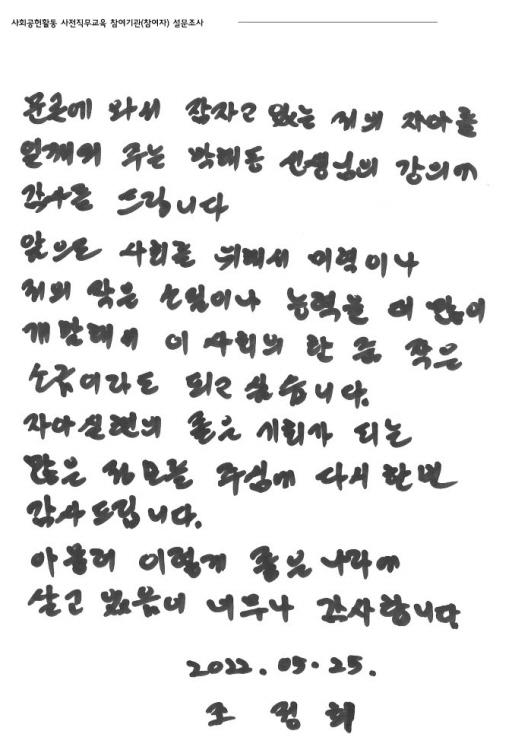 사회공헌활동 사전직무교육 참여기관(참여자) 설문조사
와서 잠자고 있는 저의 자아를
일깨워 주는 선생님의 강의에
감사를 드립니다
앞으로 사회를 위해서 미력이나
저의 작은 소일이나 능력을 더 많이
개발해서 이 사회의 한 줌 작은
소금이라도 되고 싶습니다.
자아실현의 좋은 기회가 되는
많은 주심에 다시 한번
감사드립니다.
아울러 이렇게 좋은 나라에
살고 있음이 너무나 감사합니다
2022. 05. 25.
조 정 희